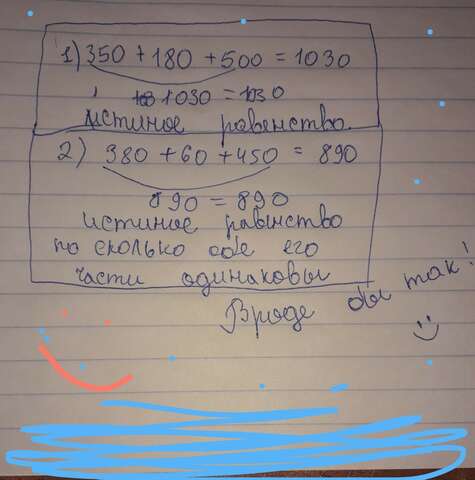 1) 350 + 180 + 500 = 1030
1030 = 1030
Истиное равенство.
2) 380 + 60 + 450 = 890
890 = 890
истиное равенство
по сколько обе его
части одинаковы
Вроде бы так!